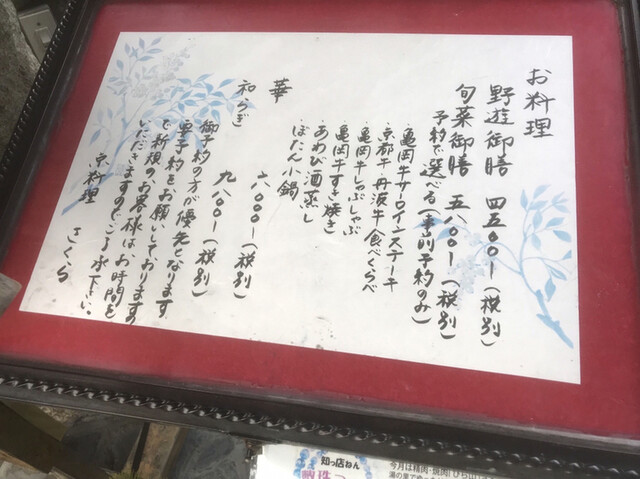 お料理
野遊御膳 四五〇〇ー(税別)
旬菜御膳 五八〇〇ー(税別)
予約で選べる(事前予約のみ)
・亀岡牛サーロインステーキ
・京都牛・丹波牛食べくらべ
・亀岡牛しゃぶしゃぶ
・亀岡牛すき焼き
・あわび酒蒸し
・ぼたん小鍋
華 六〇〇〇ー(税別)
和らぎ 九八〇〇ー(税別)
御予約の方が優先となります
要予約をお願いしておりますの
で新規のお客様はお時間を
いただきますのでご了承下さい。
京料理 さくら
知っ店ねん
今月は精肉・焼肉